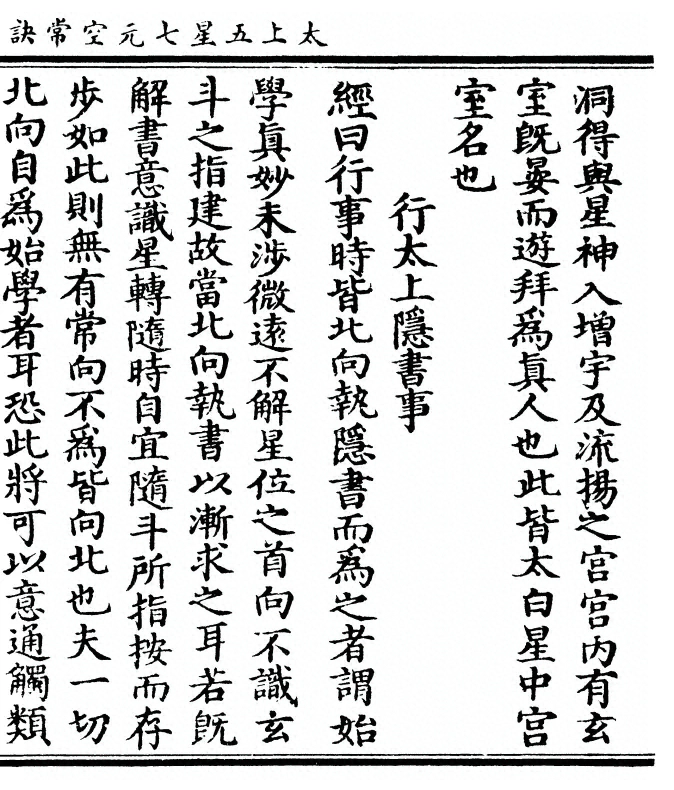 太上五星七元空常訣
洞得與星神入增宇及流揚之宮宮內有玄
室既晏而遊拜爲眞人也此皆太白星中宮
室名也
行太上隱書事
經曰行事時皆北向執隱書而爲之者謂始
學眞妙未涉微遠不解星位之首向不識玄
斗之指建故當北向執書以漸求之耳若既
解書意識星轉隨時自宜隨斗所指按而存
步如此則無有常向不爲皆向北也夫一切
北向自爲始學者耳恐此將可以意通觸類